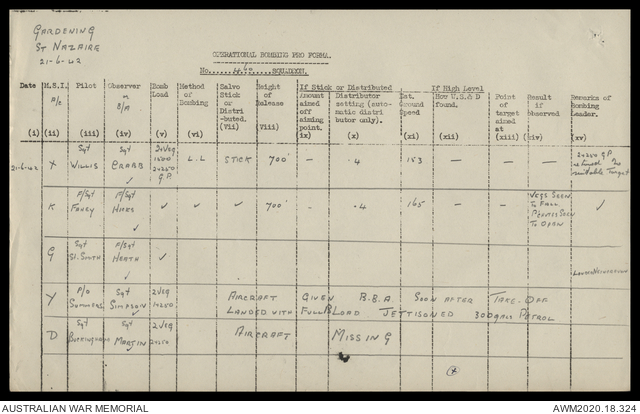 GARDENING
ST NAZAIRE
21-6-42
OPERATIONAL BOMBING PRO FORMA.
No. SQUADRON.
Date (i)
M.S.I. A/C (ii)
Pilot (iii)
Observer or B/A (iv)
Bomb Load (v)
Method of Bombing (vi)
Salvo Stick or Distri-buted. (Vii)
Height of Release (Viii)
If Stick or Distributed
Amount aimed off aiming point. (ix)
Distributor setting (auto-matic distri butor only). (x)
Ist. Ground Speed (xi)
If High Level
How U.S. & D found. (xii)
Point of target aimed at (xiii)
Result if observed (xiv)
Remarks of Bombing Leader. (xv)
21-6-42 X Sgt WILLIS Sgt CRABB 2 VEG 1500 2x250 G.P. L.L STICK 700' — .4 153 — — — 2x250 G.P. suitable Target
K F/Sgt F/Sgt HICKS ✓ ✓ ✓ 700' — .4 165 — — VEGS SEEN TO FALL. SEEN TO OPEN ✓
G Sgt SMITH F/Sgt HEATH ✓
Y P/O SUMMERS Sgt SIMPSON 2 VEG AIRCRAFT GIVEN B.B.A SOON AFTER TAKE-OFF
LANDED WITH FULL LOAD JETTISONED 300 GALL PETROL
D Sgt BUCKINGHAM Sgt MARTIN 2 VEG AIRCRAFT MISSING
AUSTRALIAN WAR MEMORIAL
AWM2020.18.324